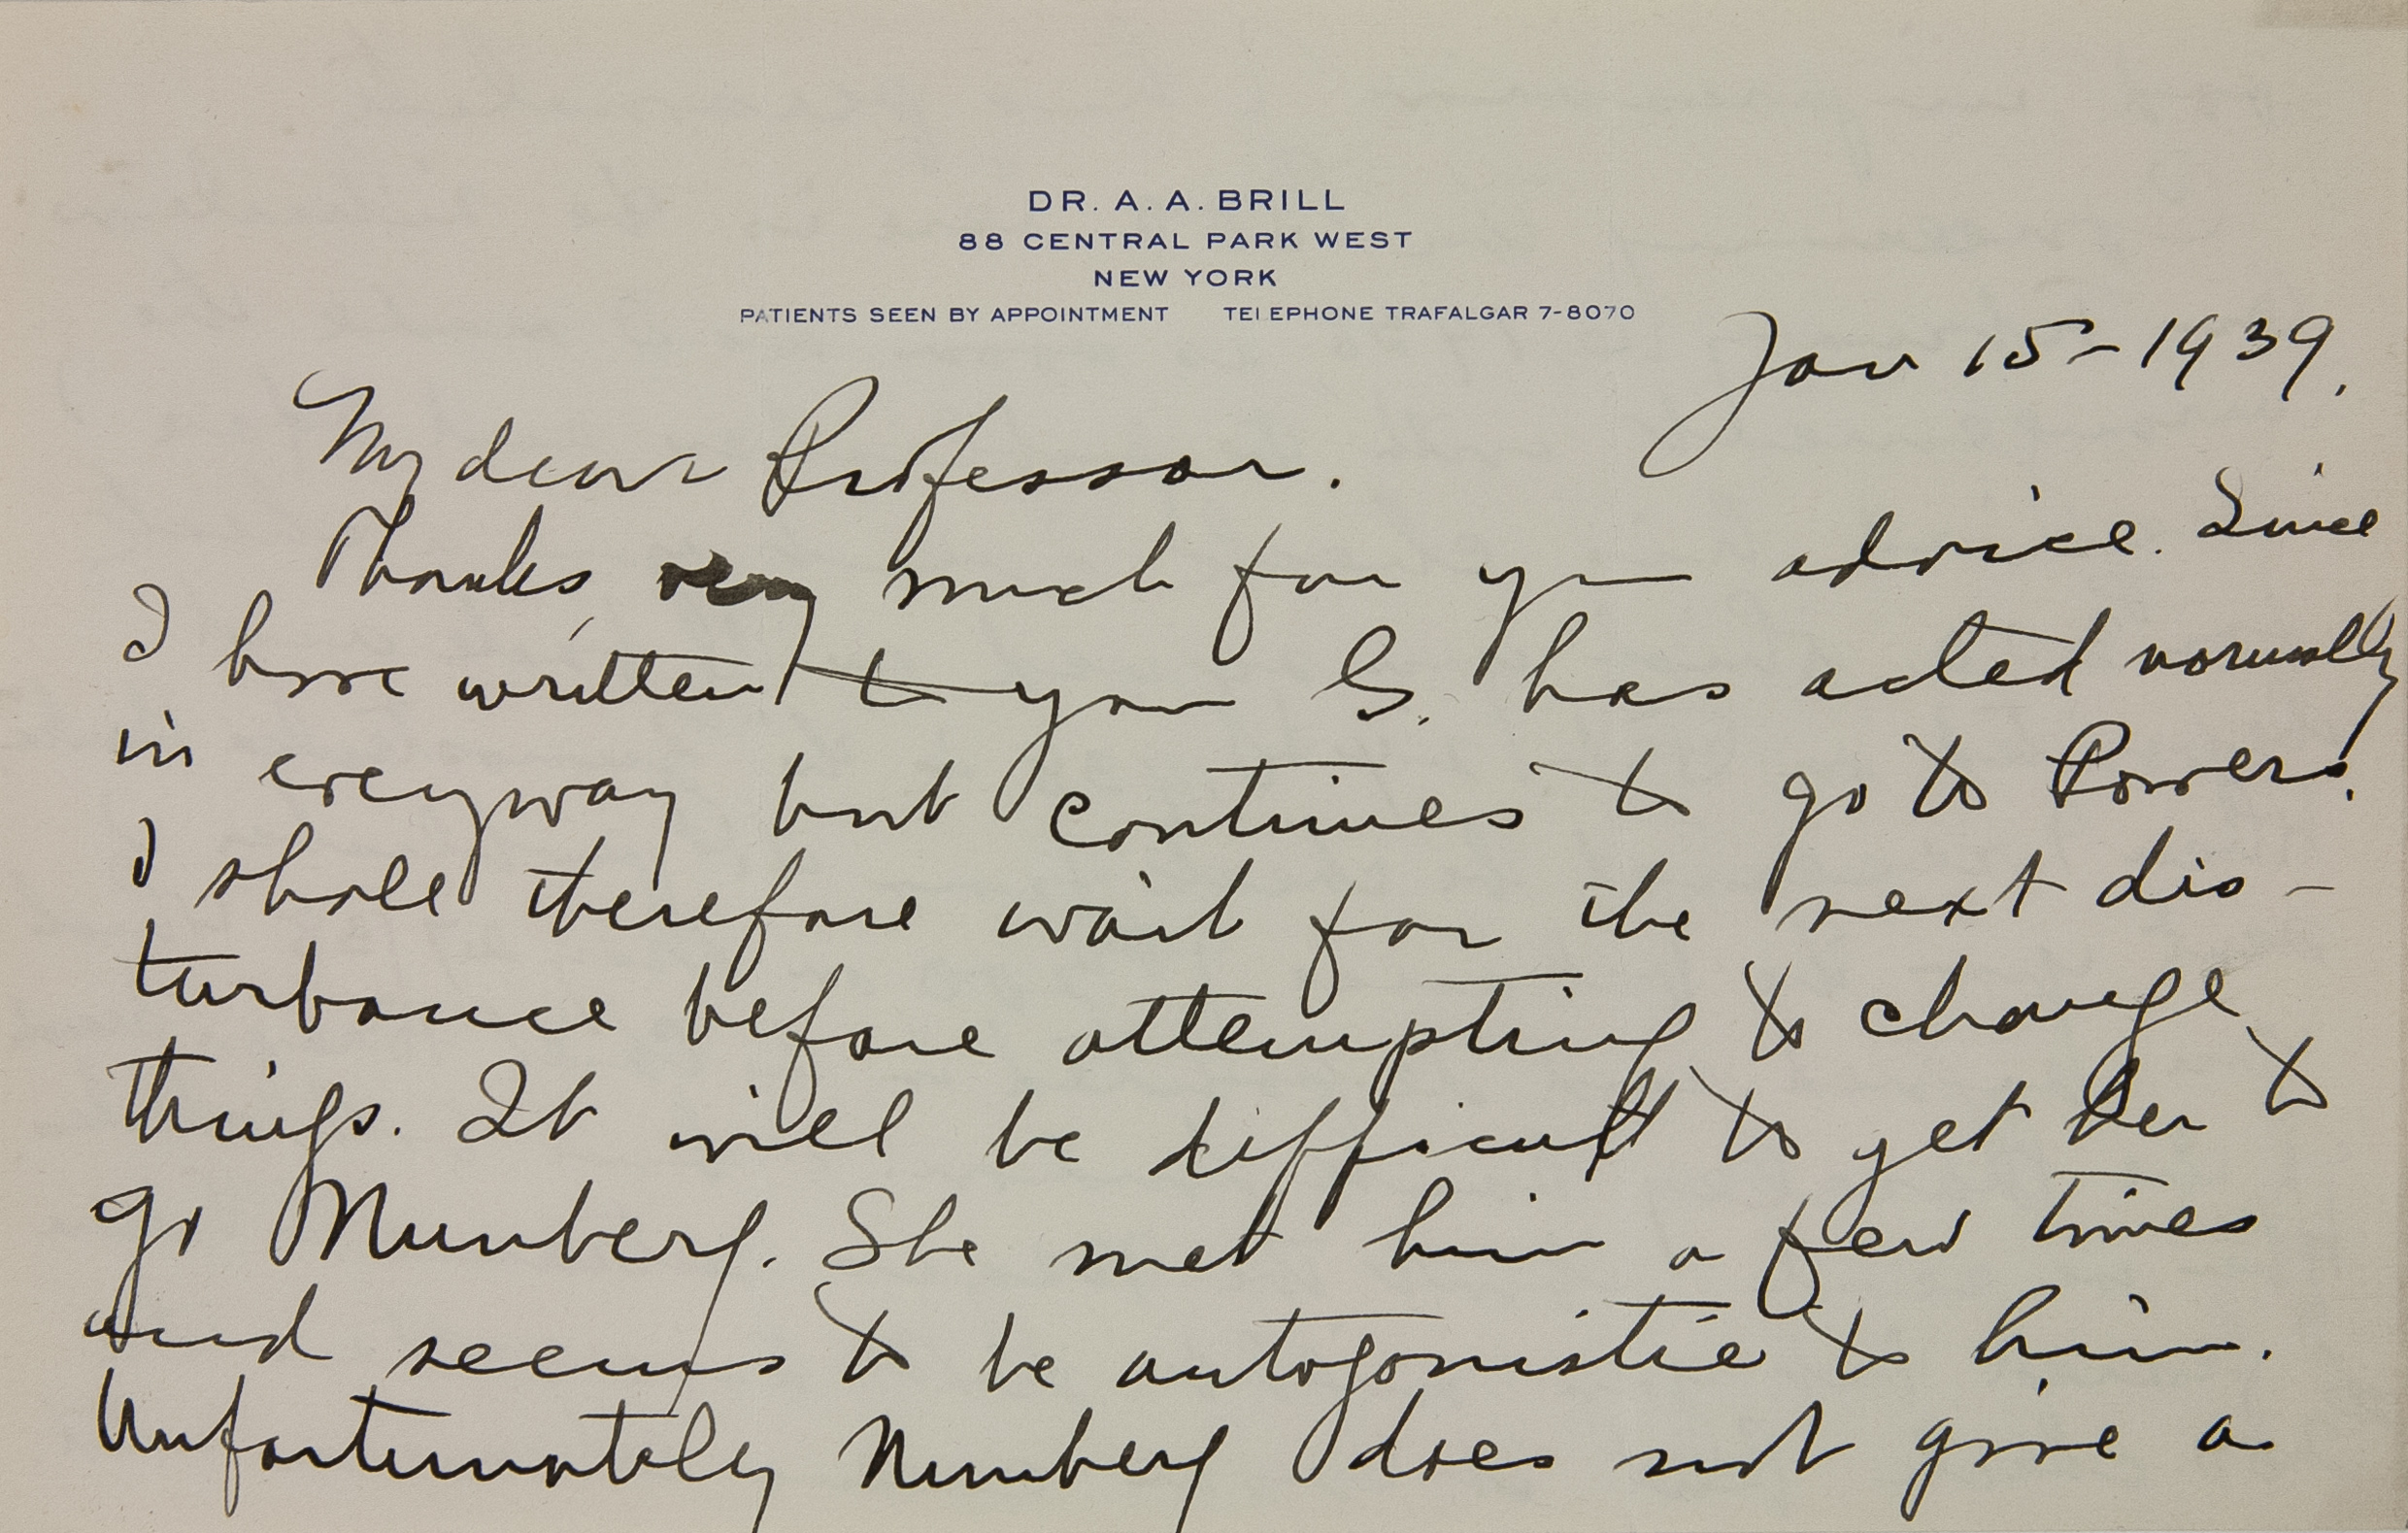 DR. A. A. BRILL
88 CENTRAL PARK WEST
NEW YORK
PATIENTS SEEN BY APPOINTMENT TELEPHONE TRAFALGAR 7-8070
Jan 15-1939.
My dear Professor.
Thanks, very much for your advice. Since
I have written to you G. has acted normally
in everyway but continues to go to Powers.
I shall therefore wait for the next dis-
turbance before attempting to change
things. It will be difficult to get her to
go Nunberg. She met him a few times
and seems to be antagonistic to him.
Unfortunately Nunberg does not give a